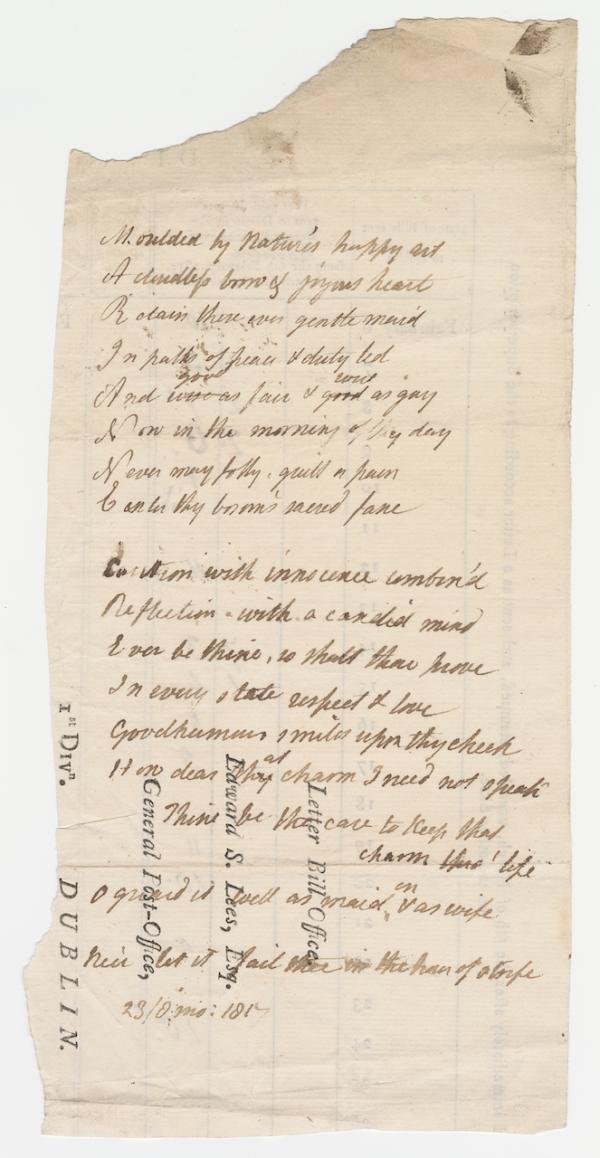 Moulded by Nature's happy art
A cloudless brow & joyous heart
Retain these ever gentle maid
In paths of peace & duty led
good wise
And wise as fair & good as gay
Now in the morning of thy day
Never may folly, guilt or pain
Enter thy bosom's sacred fane
Caution with innocence combin'd
Reflection with a candid mind
Ever be thine, so shalt thou prove
In every state respect & love
Goodhumour smiles upon thy cheek
at
How dear charm I need not speak
Thine be the care to keep that
charm thro' life
O guard it well as maid & as wife
Ne'er let it fail thee in the hour of strife
23/8 mo: 181
1st Divn.
DUBLIN.
General Post-Office,
Edward S. Lees, Esq.
Letter Bill Office,